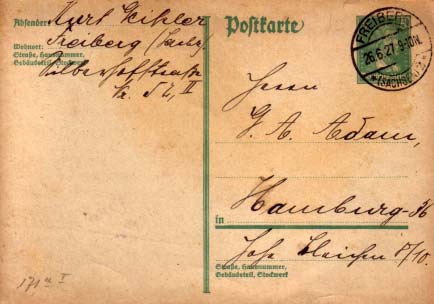 Absender:
Kurt Eichler
Wohnort:
Freiberg (Sachs)
Straße, Hausnummer,
Gebäudeteil, Stockwerk
Silberhofstraße
Postkarte
FREIBERG
26.6.27. 9-10N.
(SACHSEN)
Herrn
G. A. Adam,
in
Hamburg-36
Hohe Bleichen 8/10.
Straße, Hausnummer,
Gebäudeteil, Stockwerk